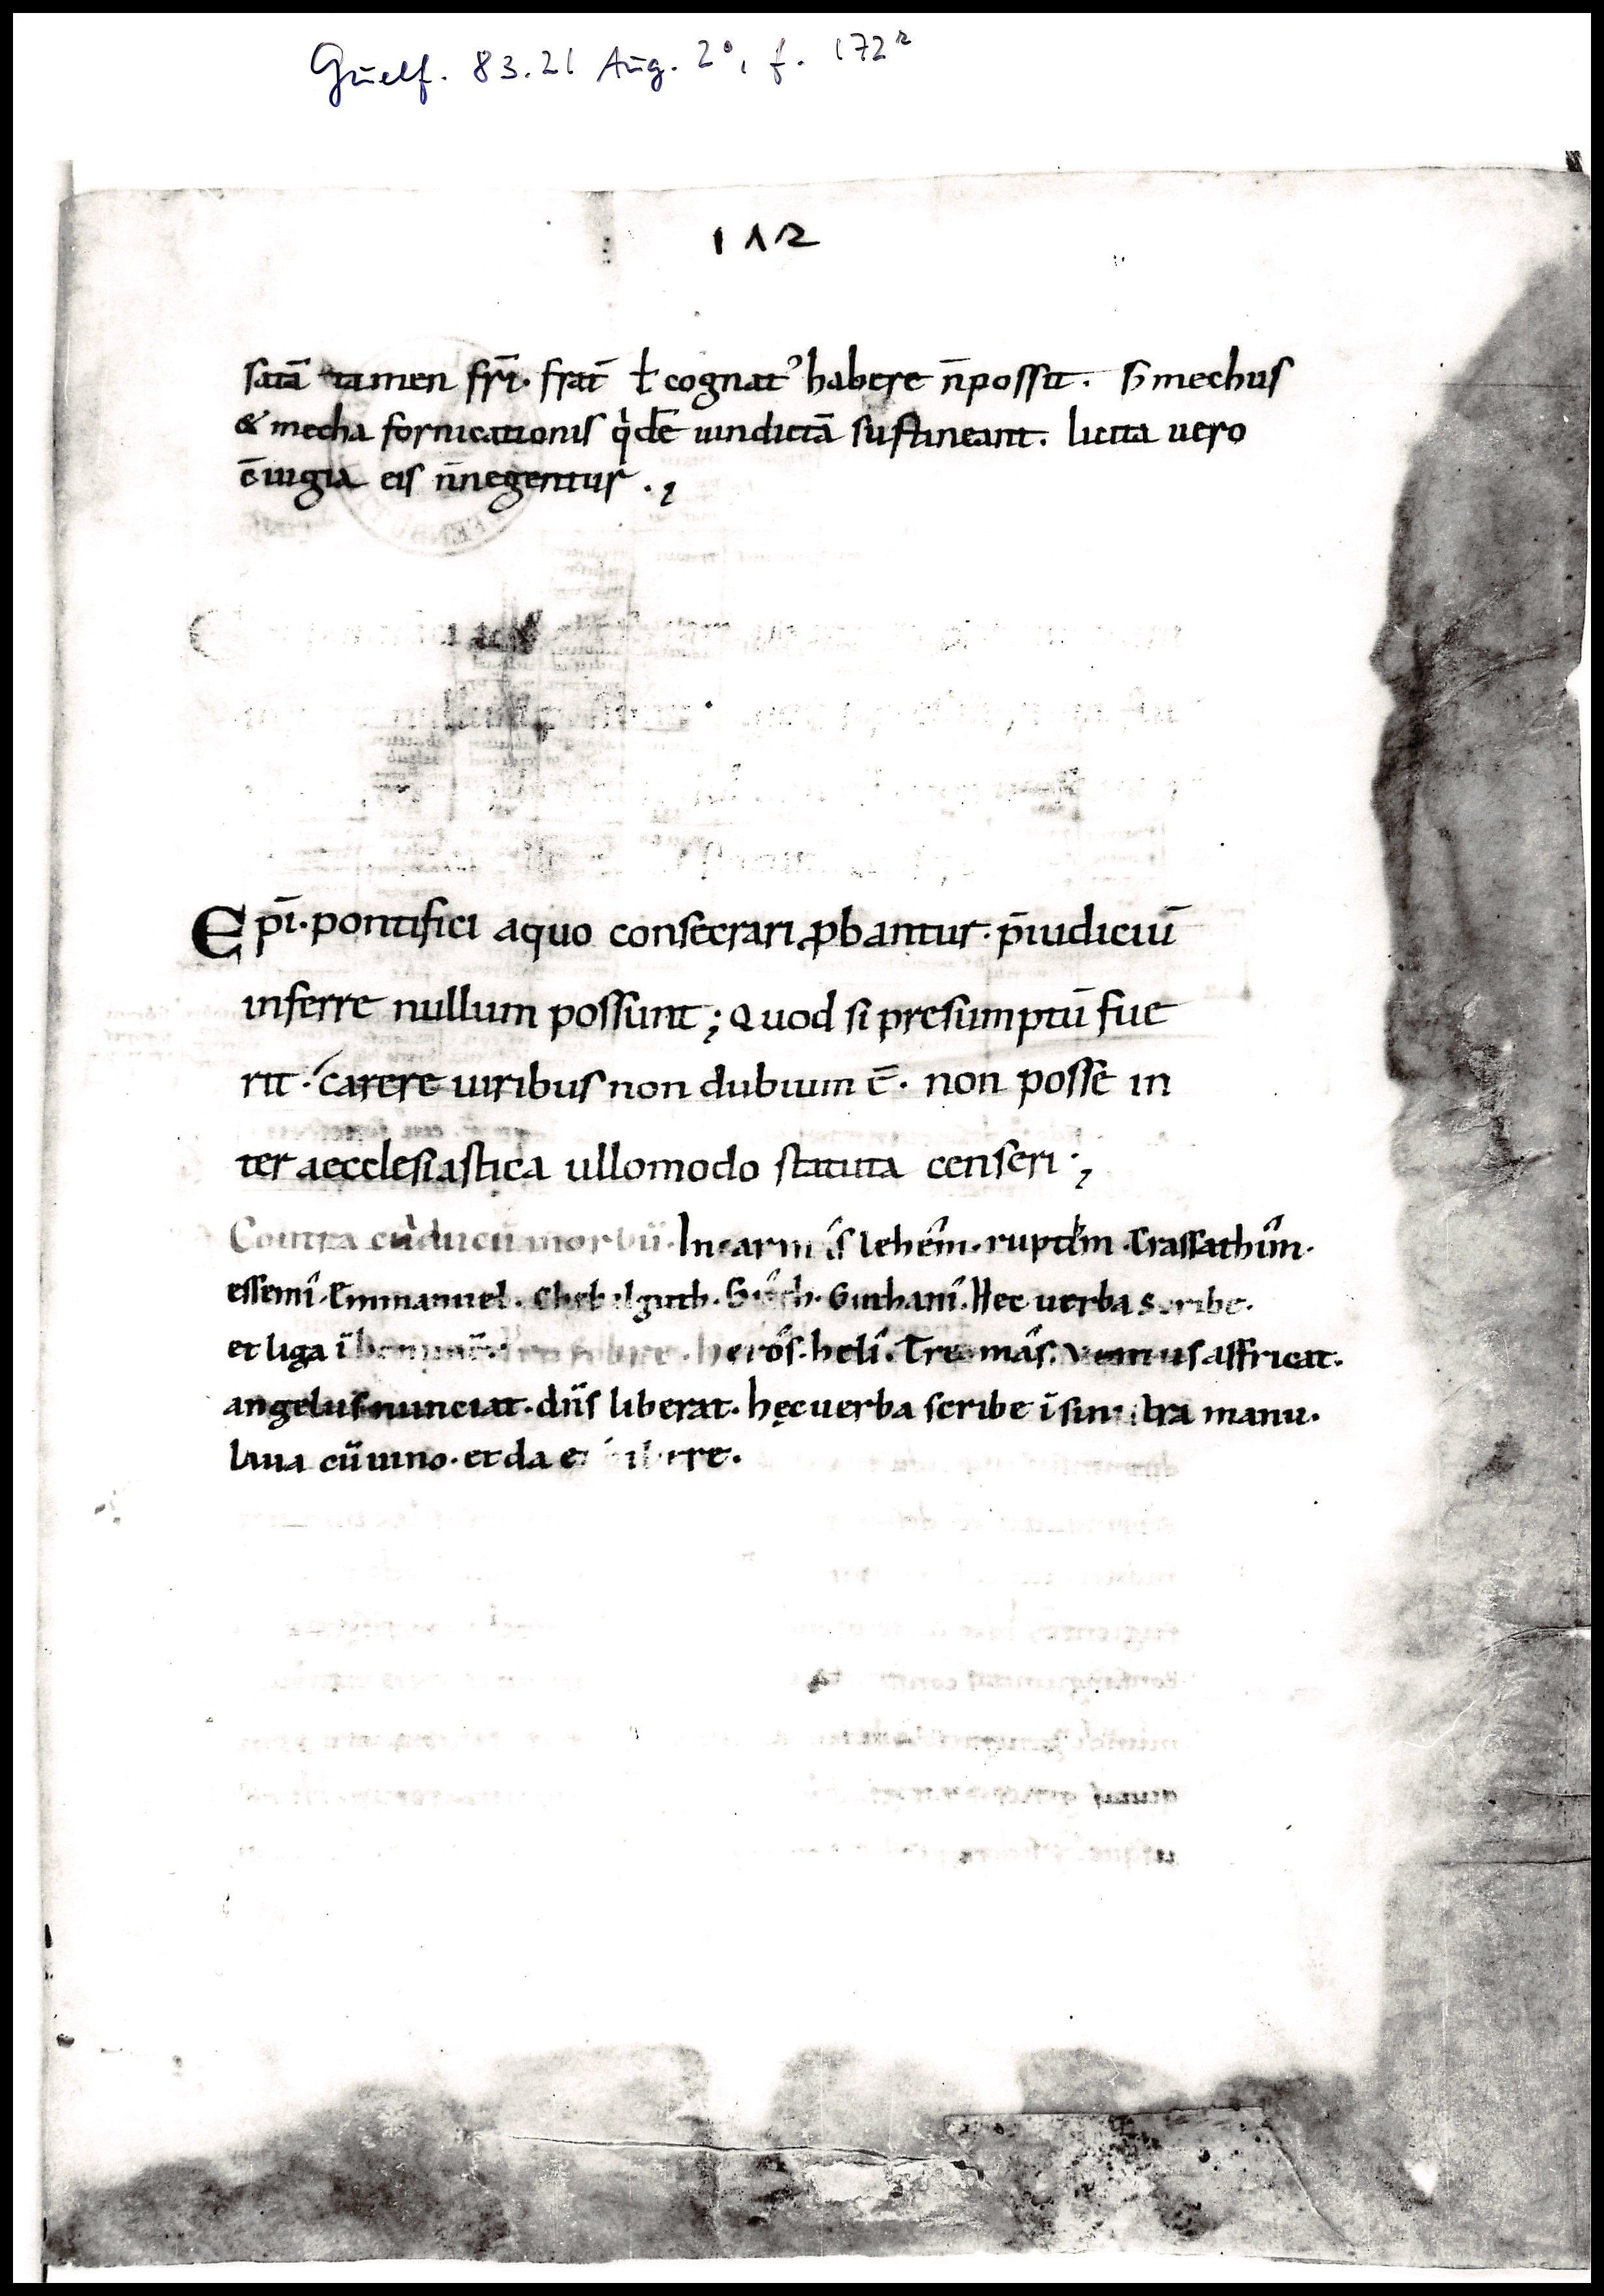 Guelf. 83.21 Aug. 2°, f. 172r
172
satā tamen fr̄i. frat̄ ł cognatꝰ habere n̄ possit. S; mechus
& mecha fornicationis qͥdē uindictā sustineant. licita uero
c̄iugia eis n̄ negentur .,
Ep̄i. pontifici aquo consecrari ꝓbantur. p̄iudiciū
inferre nullum possunt; Quod si presumptū fue
rit. carere uiribus non dubium ē. non posse in
ter aecclesiastica ullomodo statuta censeri .,
Contra morbū. lehem. ruptem. Trassathim.
essemi. Emmanuel. Guthani. Hec uerba scribe.
et liga ī heros. heli. Tremas. Ventus affricat.
angelus nunciat. dn̄s liberat. hęc uerba scribe ī sinistra manu.
laua cū uino. et da ei bibere.